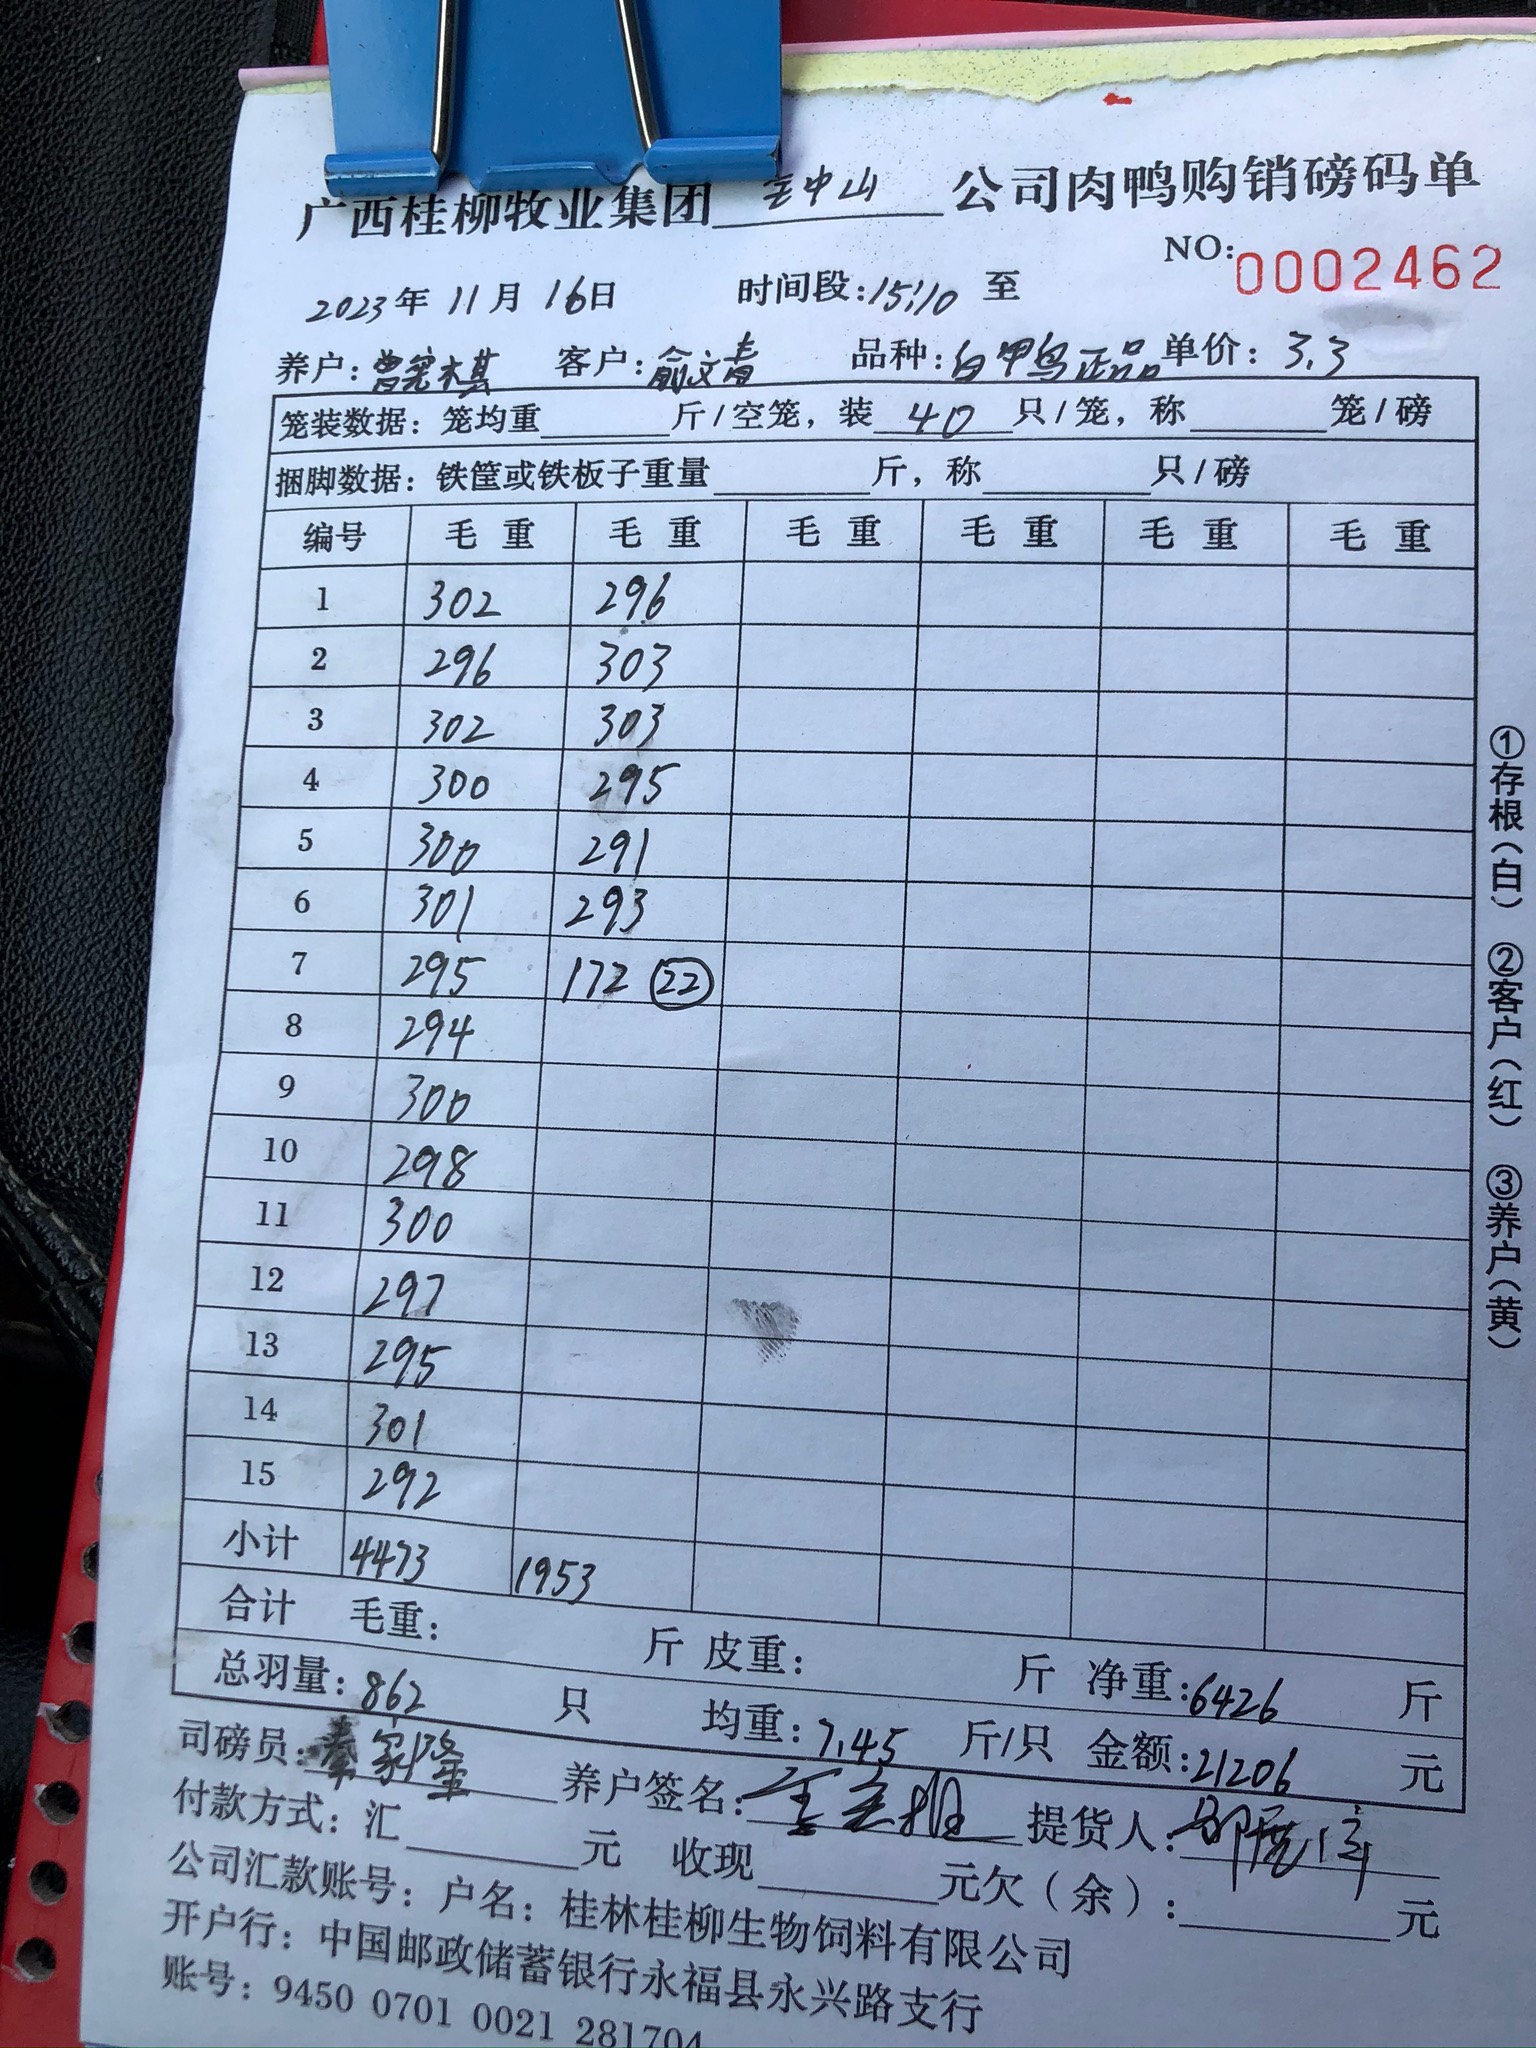 广西桂柳牧业集团 王中山 公司肉鸭购销磅码单
NO:0002462
2023年 11月 16日 时间段:15:10 至
养户: 客户:俞文青 品种:白甲鸟正品 单价: 3.3
笼装数据: 笼均重 斤/空笼, 装 40 只/笼, 称 笼/磅
捆脚数据: 铁筐或铁板子重量 斤, 称 只/磅
编号 毛重 毛重 毛重 毛重 毛重 毛重
1 302 296
2 296 303
3 302 303
4 300 295
5 300 291
6 301 293
7 295 172 22
8 294
9 300
10 298
11 300
12 297
13 295
14 301
15 292
小计 4473 1953
合计 毛重: 斤 皮重: 斤 净重:6426 斤
总羽量:862 只 均重:7.45 斤/只 金额:21206 元
司磅员: 养户签名: 提货人:
付款方式: 汇 元 收现 元欠(余): 元
公司汇款账号: 户名: 桂林桂柳生物饲料有限公司
开户行: 中国邮政储蓄银行永福县永兴路支行
账号: 9450 0701 0021 281704
①存根(白) ②客户(红) ③养户(黄)